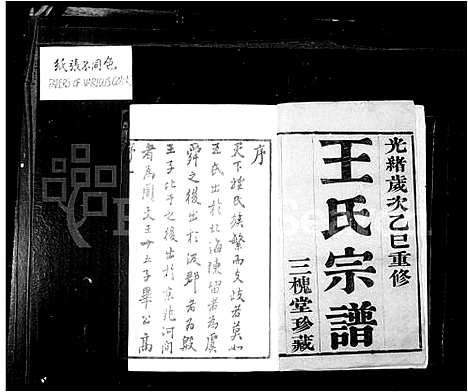 紙張不同色
PAPERS OF VARIOUS COLORS
光緒歲次乙巳重修
王氏宗譜
三槐堂珍藏
序
天下姓氏族繁而文歧者莫如
王氏出於北海陳留者為虞
舜之後出於汲郡者為殷
王子比干之後出於京兆河間
者為周文王廿五子畢公高